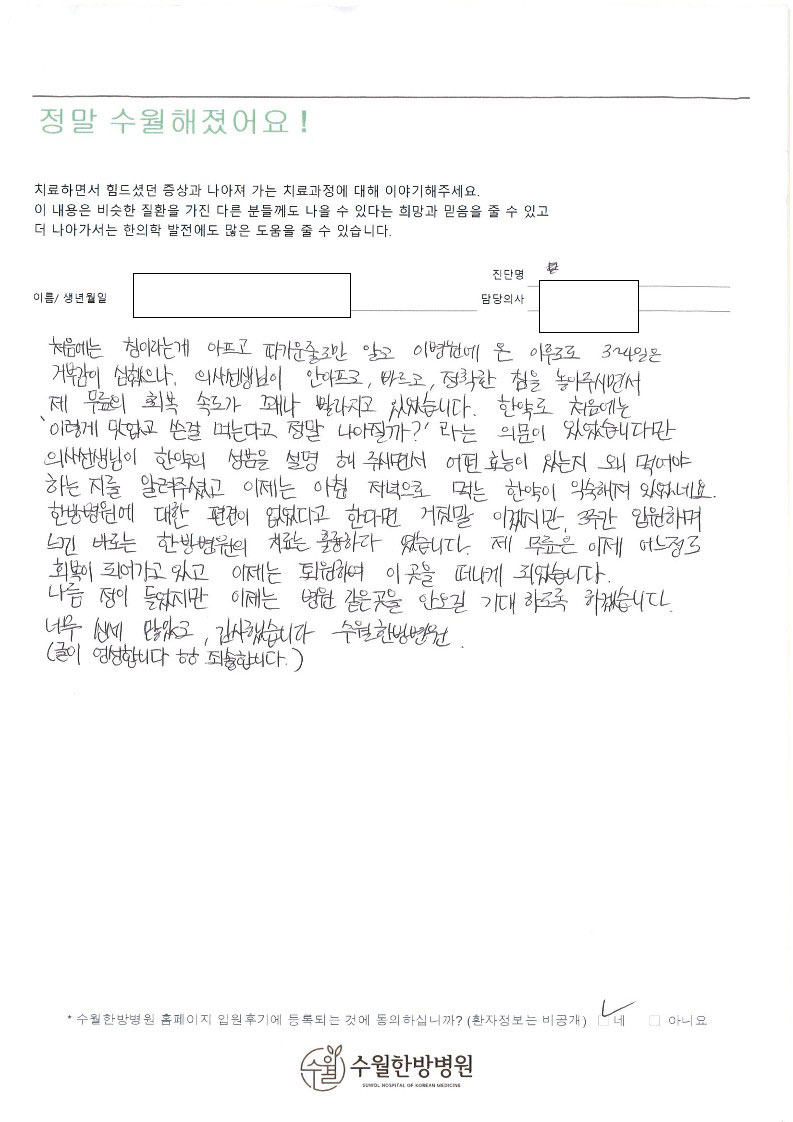 정말 수월해졌어요!
치료하면서 힘드셨던 증상과 나아져 가는 치료과정에 대해 이야기해주세요.
이 내용은 비슷한 질환을 가진 다른 분들께도 나을 수 있다는 희망과 믿음을 줄 수 있고
더 나아가서는 한의학 발전에도 많은 도움을 줄 수 있습니다.
진단명
이름/ 생년월일 담당의사
처음에는 침이라는게 아프고 따가운줄로만 알고 이병원에 온 이후로도 3~4일은
거부감이 심했으나, 의사선생님이 안아프고, 바르고, 정확한 침을 놓아주시면서
제 무릎의 회복 속도가 꽤나 빨라지고 있었습니다. 한약도 처음에는
'이렇게 맛없고 쓴걸 먹는다고 정말 나아질까?' 라는 의문이 있었습니다만
의사선생님이 한약의 성분을 설명 해 주시면서 어떤 효능이 있는지 왜 먹어야
하는 지를 알려주셨고 이제는 아침 저녁으로 먹는 한약이 익숙해져 있었네요.
한방병원에 대한 편견이 없었다고 한다면 거짓말 이겠지만, 3주간 입원하며
느낀 바로는 한방병원의 치료는 훌륭하다 였습니다. 제 무릎은 이제 어느정도
회복이 되어가고 있고 이제는 퇴원하여 이 곳을 떠나게 되었습니다.
나름 정이 들었지만 이제는 병원 같은곳을 안오길 기대 하도록 하겠습니다.
너무 신세 많았고, 감사했습니다 수월한방병원.
(글이 엉성합니다 ㅎㅎ 죄송합니다.)
* 수월한방병원 홈페이지 입원후기에 등록되는 것에 동의하십니까? (환자정보는 비공개) 네 아니요
수월 수월한방병원
SUWOL HOSPITAL OF KOREAN MEDICINE